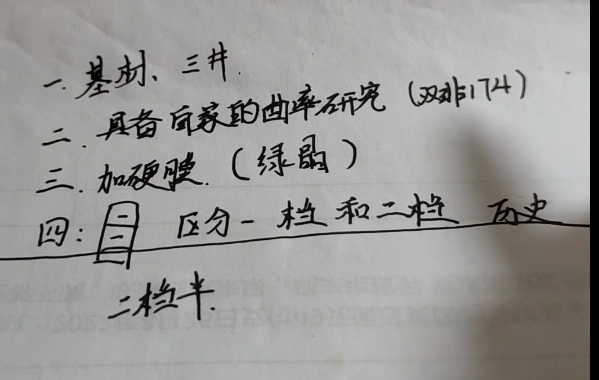 一.基材、三井.
二.具备自家的曲率研究(双非174)
三.加硬膜.(绿晶)
四:一二 区分一档和二档 历史
二档半